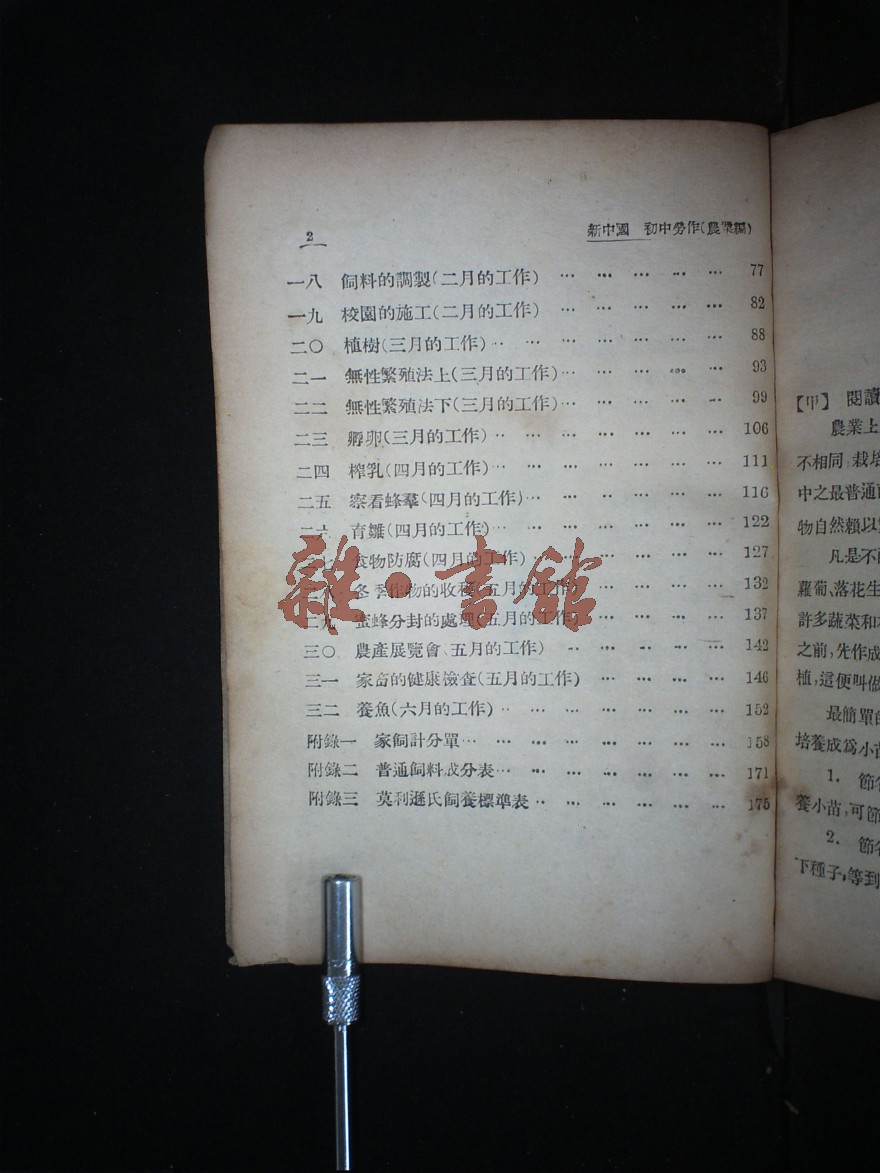 2
新中國 初中勞作(農業編)
一八 飼料的調製(二月的工作) … … … … … 77
一九 校園的施工(二月的工作) … … … … … 82
二〇 植樹(三月的工作) … … … … … … 88
二一 無性繁殖法上(三月的工作)… … … … … 93
二二 無性繁殖法下(三月的工作)… … … … … 99
二三 孵卵(三月的工作) … … … … … … 106
二四 榨乳(四月的工作) … … … … … … 111
二五 察看蜂羣(四月的工作)… … … … … … 116
二六 育雛(四月的工作) … … … … … … 122
二七 食物防腐(四月的工作) … … … … … 127
二八 冬季作物的收穫(五月的工作) … … … … 132
二九 蜜蜂分封的處理(五月的工作) … … … … 137
三〇 農產展覽會(五月的工作) … … … … … 142
三一 家畜的健康檢查(五月的工作) … … … … 146
三二 養魚(六月的工作) … … … … … … 152
附錄一 家飼計分單… … … … … … … 158
附錄二 普通飼料成分表… … … … … … 171
附錄三 莫利遜氏飼養標準表 … … … … … 175
雜·書館
【甲】 閱讀
農業上
不相同,栽培
中之最普通
物自然賴以
凡是不
蘿蔔、落花生
許多蔬菜和
之前,先作成
植,這便叫做
最簡單的
培養成爲小苗
1. 節省
養小苗,可節
2. 節省
下種子,等到